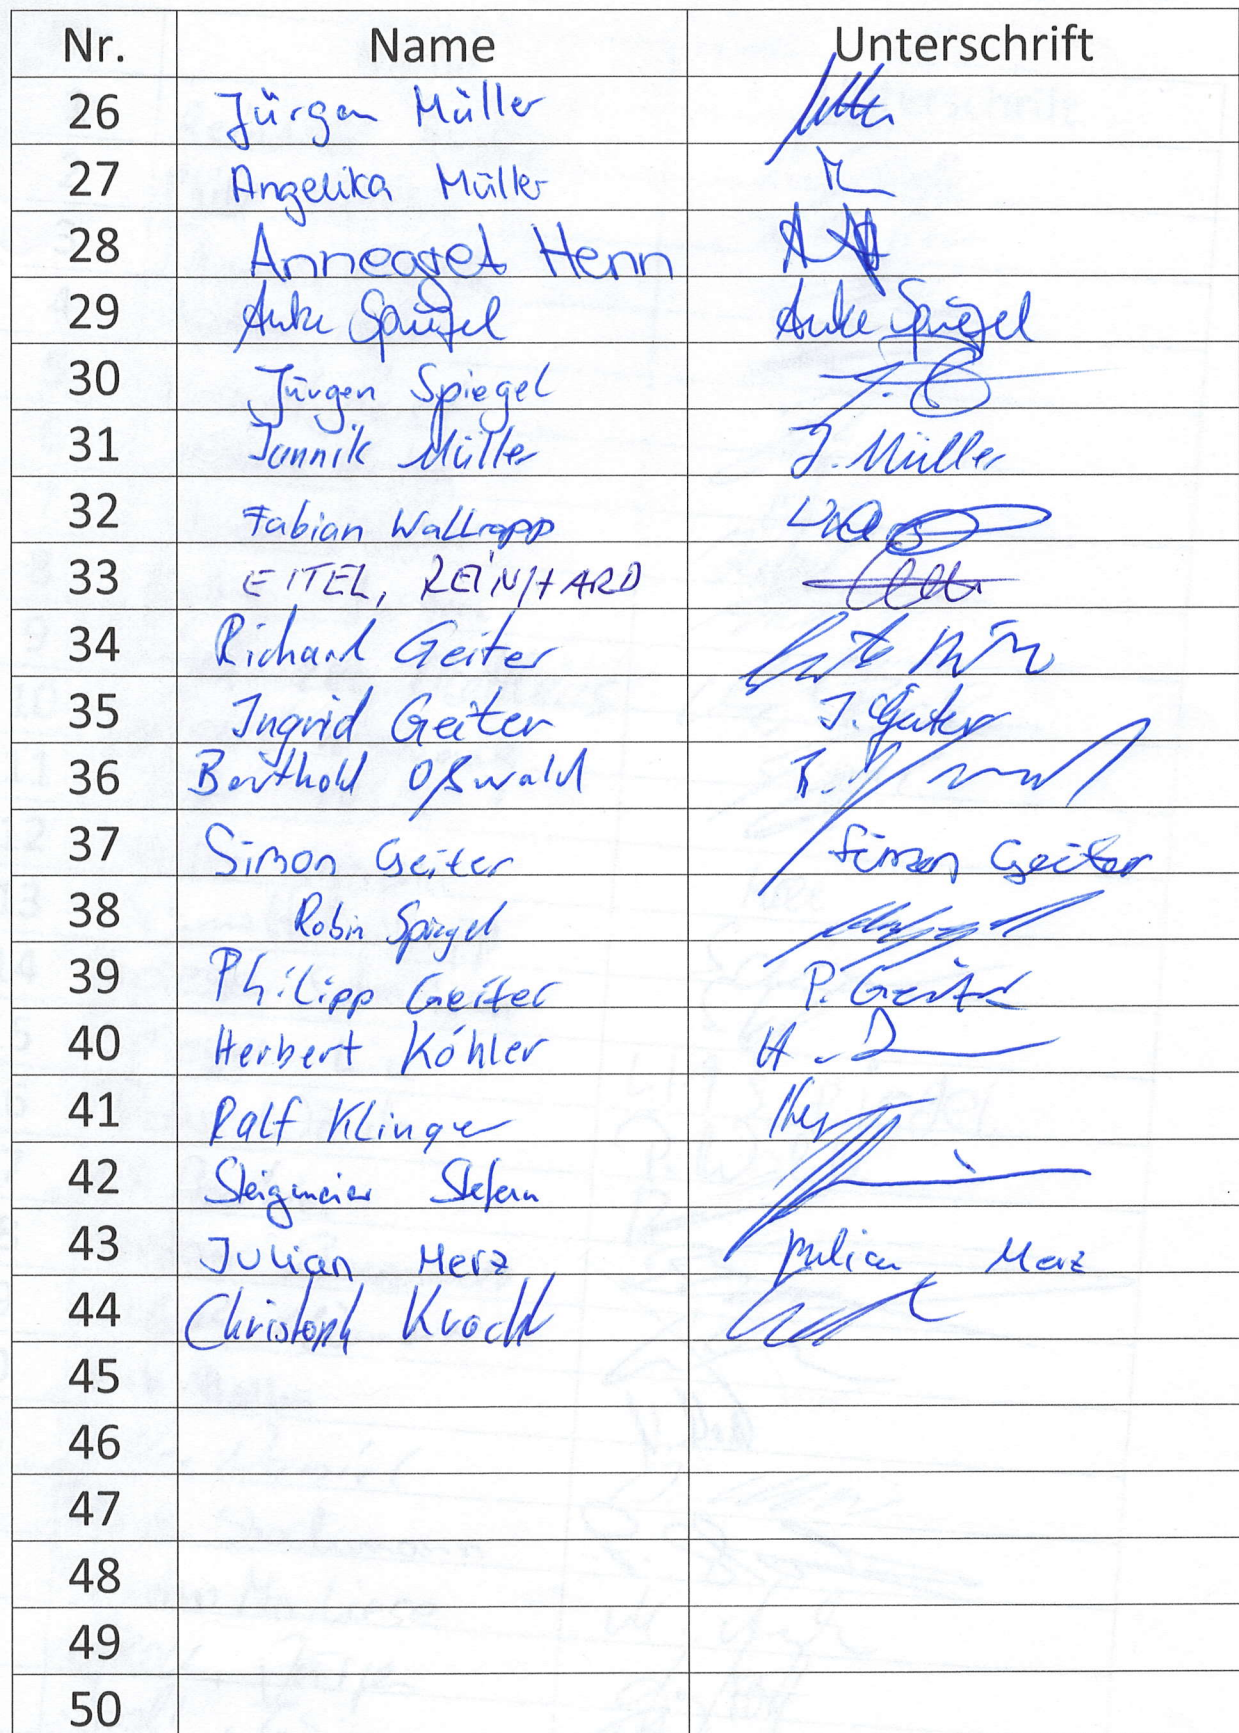 Nr. Name Unterschrift
26 Jürgen Müller
27 Angelika Müller
28 Annegret Henn
29 Anke Spiegel Anke Spiegel
30 Jürgen Spiegel
31 Jannik Müller J. Müller
32 Fabian Wallrapp
33 EITEL, REINHARD
34 Richard Geiter
35 Ingrid Geiter I. Geiter
36 Berthold Oßwald
37 Simon Geiter Simon Geiter
38 Robin Spiegel
39 Philipp Geiter P. Geiter
40 Herbert Köhler
41 Ralf Klinger
42 Steigmeier Stefan
43 Julian Merz Julian Merz
44 Christoph
45
46
47
48
49
50